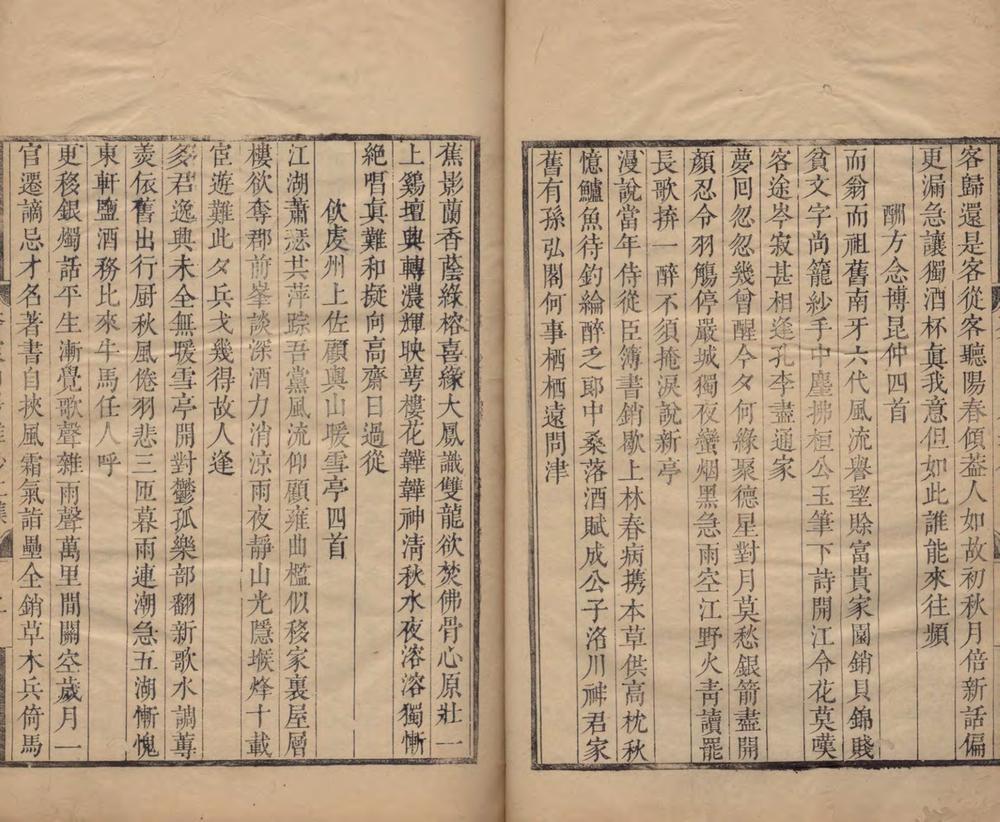 客歸還是客從客聽陽春傾葢人如故初秋月倍新話偏
更漏急讓獨酒杯眞我意但如此誰能來往頻
酬方念博昆仲四首
而翁而祖舊南牙六代風流譽望賒富貴家園銷貝錦賤
貧文字尚籠紗手中麈拂桓公玉筆下詩開江令花莫嘆
客途岑寂甚相逢孔李盡通家
夢回忽忽幾曾醒今夕何緣聚德星對月莫愁銀箭盡開
顏忍令羽觴停嚴城獨夜蠻烟黑急雨空江野火靑讀罷
長歌拚一醉不須掩淚說新亭
漫說當年侍從臣簿書銷歇上林春病携本草供高枕秋
憶鱸魚待釣綸醉乏郎中桑落酒賦成公子洛川神君家
舊有孫弘閣何事栖栖遠問津
蕉影蘭香蔭綠榕喜緣大鳳識雙龍欲焚佛骨心原壯一
上鷄壇興轉濃輝映萼樓花韡韡神淸秋水夜溶溶獨慚
絕唱眞難和擬向高齋日過從
飲虔州上佐顧與山暖雪亭四首
江湖蕭瑟共萍踪吾黨風流仰顧雍曲檻似移家裏屋層
樓欲奪郡前峯談深酒力消凉雨夜靜山光隱堠烽十載
宦遊難此夕兵戈幾得故人逢
多君逸興未全無暖雪亭開對鬱孤樂部翻新歌水調蓴
羹依舊出行厨秋風倦羽悲三匝暮雨連潮急五湖慚愧
東軒鹽酒務比來牛馬任人呼
更移銀燭話平生漸覺歌聲雜雨聲萬里間關空歲月一
官遷謫忌才名著書自挾風霜氣詣壘全銷草木兵倚馬